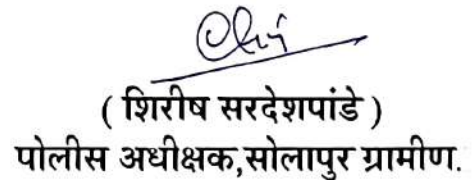 ( शिरीष सरदेशपांडे )
पोलीस अधीक्षक,सोलापुर ग्रामीण.